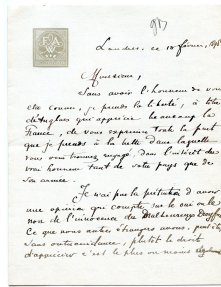 Londres, ce 18 février, 1898
Monsieur,
Sans avoir l'honneur de vous
être connu, je prends la liberté, à titre
d'Anglais qui apprécie beaucoup la
France, de vous exprimer toute la part
que je prends à la lutte dans laquelle
vous vous trouvez engagé, dans l'intérêt du
vrai honneur tant de votre pays que de
son armée.
Je n'ai pas la prétention d'avoir
une opinion qui compte sur le oui ou le
non de l'innocence du malheureux Dreyfus
Ce que nous autres étrangers avons, peut-être
sans outrecuidance, plutôt le droit
d'apprécier c'est le plus ou moins